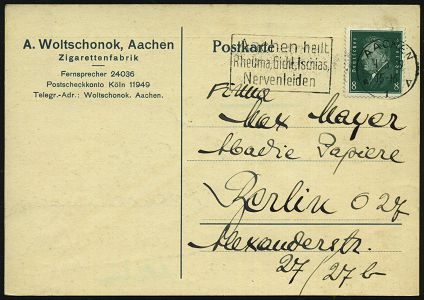 A. Woltschonok, Aachen
Zigarettenfabrik
Fernsprecher 24036
Postscheckkonto Köln 11949
Telegr.-Adr.: Woltschonok. Aachen.
Postkarte
Aachen heilt
Rheuma, Gicht, Ischias,
Nervenleiden
AACHEN
8 8
Firma
Max Mayer
Madie Papiere
Berlin O 27
Alexanderstr.
27/27b